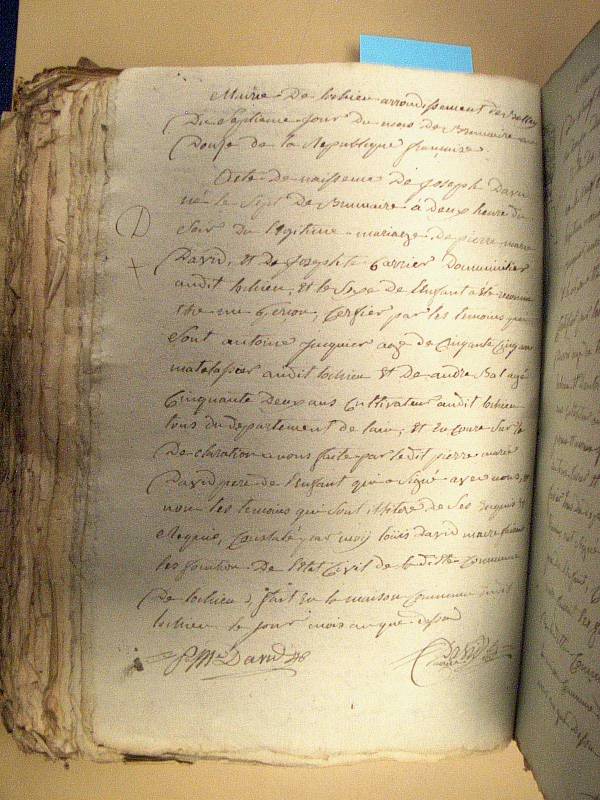 Mairie De lochieu arrondissement de Belley
Du Septieme jour Du mois De Brumaire an
Douze de la Republique française
Acte De naissence De joseph David
né le Sept De Brumaire à Deux heure du
D
Soir Du legitime mariage De pierre marie
David, et De josephte Carrier Domicilier
audit lochieu, et le Sexe de lenfant a été reconnu
être un Gerson, Certfier par les temoins qui
Sont antoine juquier age de Cinquante Cinq ans
matelassier audit lochieu et De andre Balagé
Cinquante Deux ans Cultivateur audit lochieu
tous du departement de lain, et En Coure Sur la
De claration a nous faite par ledit pierre marie
David pere de lenfant qui a Signé avec nous, et
non les temoins qui Sont illitere de Ses Enquis et
Requis, Constaté par moij loüis david maire faisant
les fonction De letat Civil de la ditte Commune
De lochieu, fait En la maison Commune dudit
lochieu le jour mois an que dessus
P Mie David
David